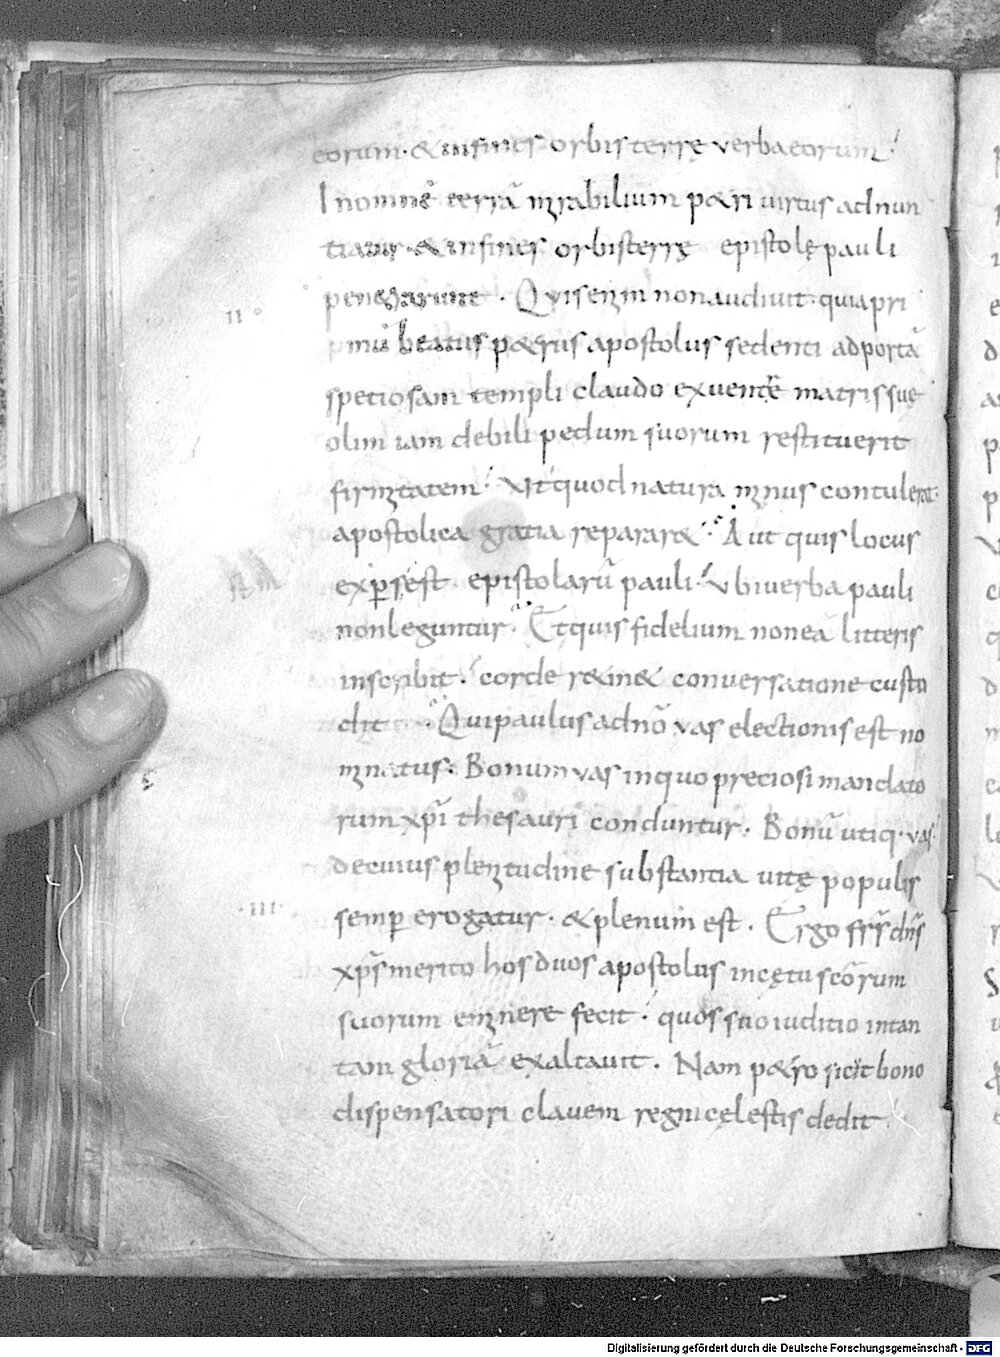 eorum · & infines orbis terrę verba eorum
In omnē terrā mirabilium petri virtus adnun
tiatur · & infines orbis terrę epistolę pauli
penetrarunt · Quis enim non audiuit · quia pri
mū beatus petrus apostolus sedenti ad portā
speciosam templi claudo ex ventre matris suę
olim iam debili pedum suorum restituerit
firmitatem · Vt quod natura minus contulerat ·
apostolica gratia repararet · Aut quis locus
expers est epistolarū pauli · vbi verba pauli
non leguntur · Et quis fidelium non eā litteris
inscribit · corde retinet conuersatione custo
dit · Qui paulus ad nō vas electionis est no
minatus · Bonum vas in quo preciosi mandato
rum xp̄i thesauri conduntur · Bonū utiq · vas
de cuius plenitudine substantia uitę populis
semp erogatur · & plenum est · Ergo frs̄ dn̄s
xp̄s merito hos duos apostolus in cętu scōrum
suorum eminere fecit · quos suo iuditio intan
tam gloriā exaltauit · Nam petro sicut bono
dispensatori clauem regni cęlestis dedit
·II·
·III·